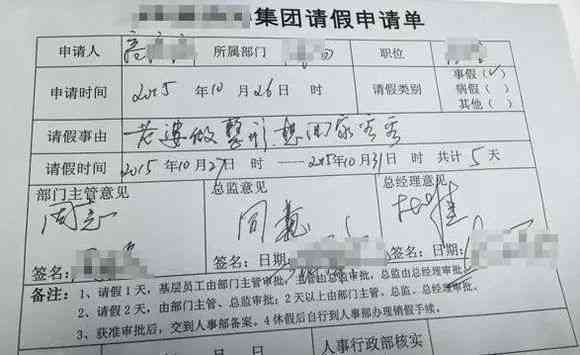 集团请假申请单
申请人 高 所属部门 职位
申请时间 2015年10月26日 时 请假类别 事假(✓) 病假( ) 其他( )
请假事由 老婆做整形,想回家看看
请假时间 2015年10月27日 时——2015年10月31日 时 共计5天
部门主管意见 总监意见 总经理意见
同意 同意
签名: 签名: 日期: 签名: 日期:
备注:1、请假1天,基层员工由部门主管审批,主管由总监审批,总监由总经理审批
2、请假2天,由部门主管、总监审批;2天以上由部门主管、总监、总经理审批。
3、获准审批后,交到人事部备案。4休假后自行到人事部办理销假手续。
年 月 日 人事行政部核实